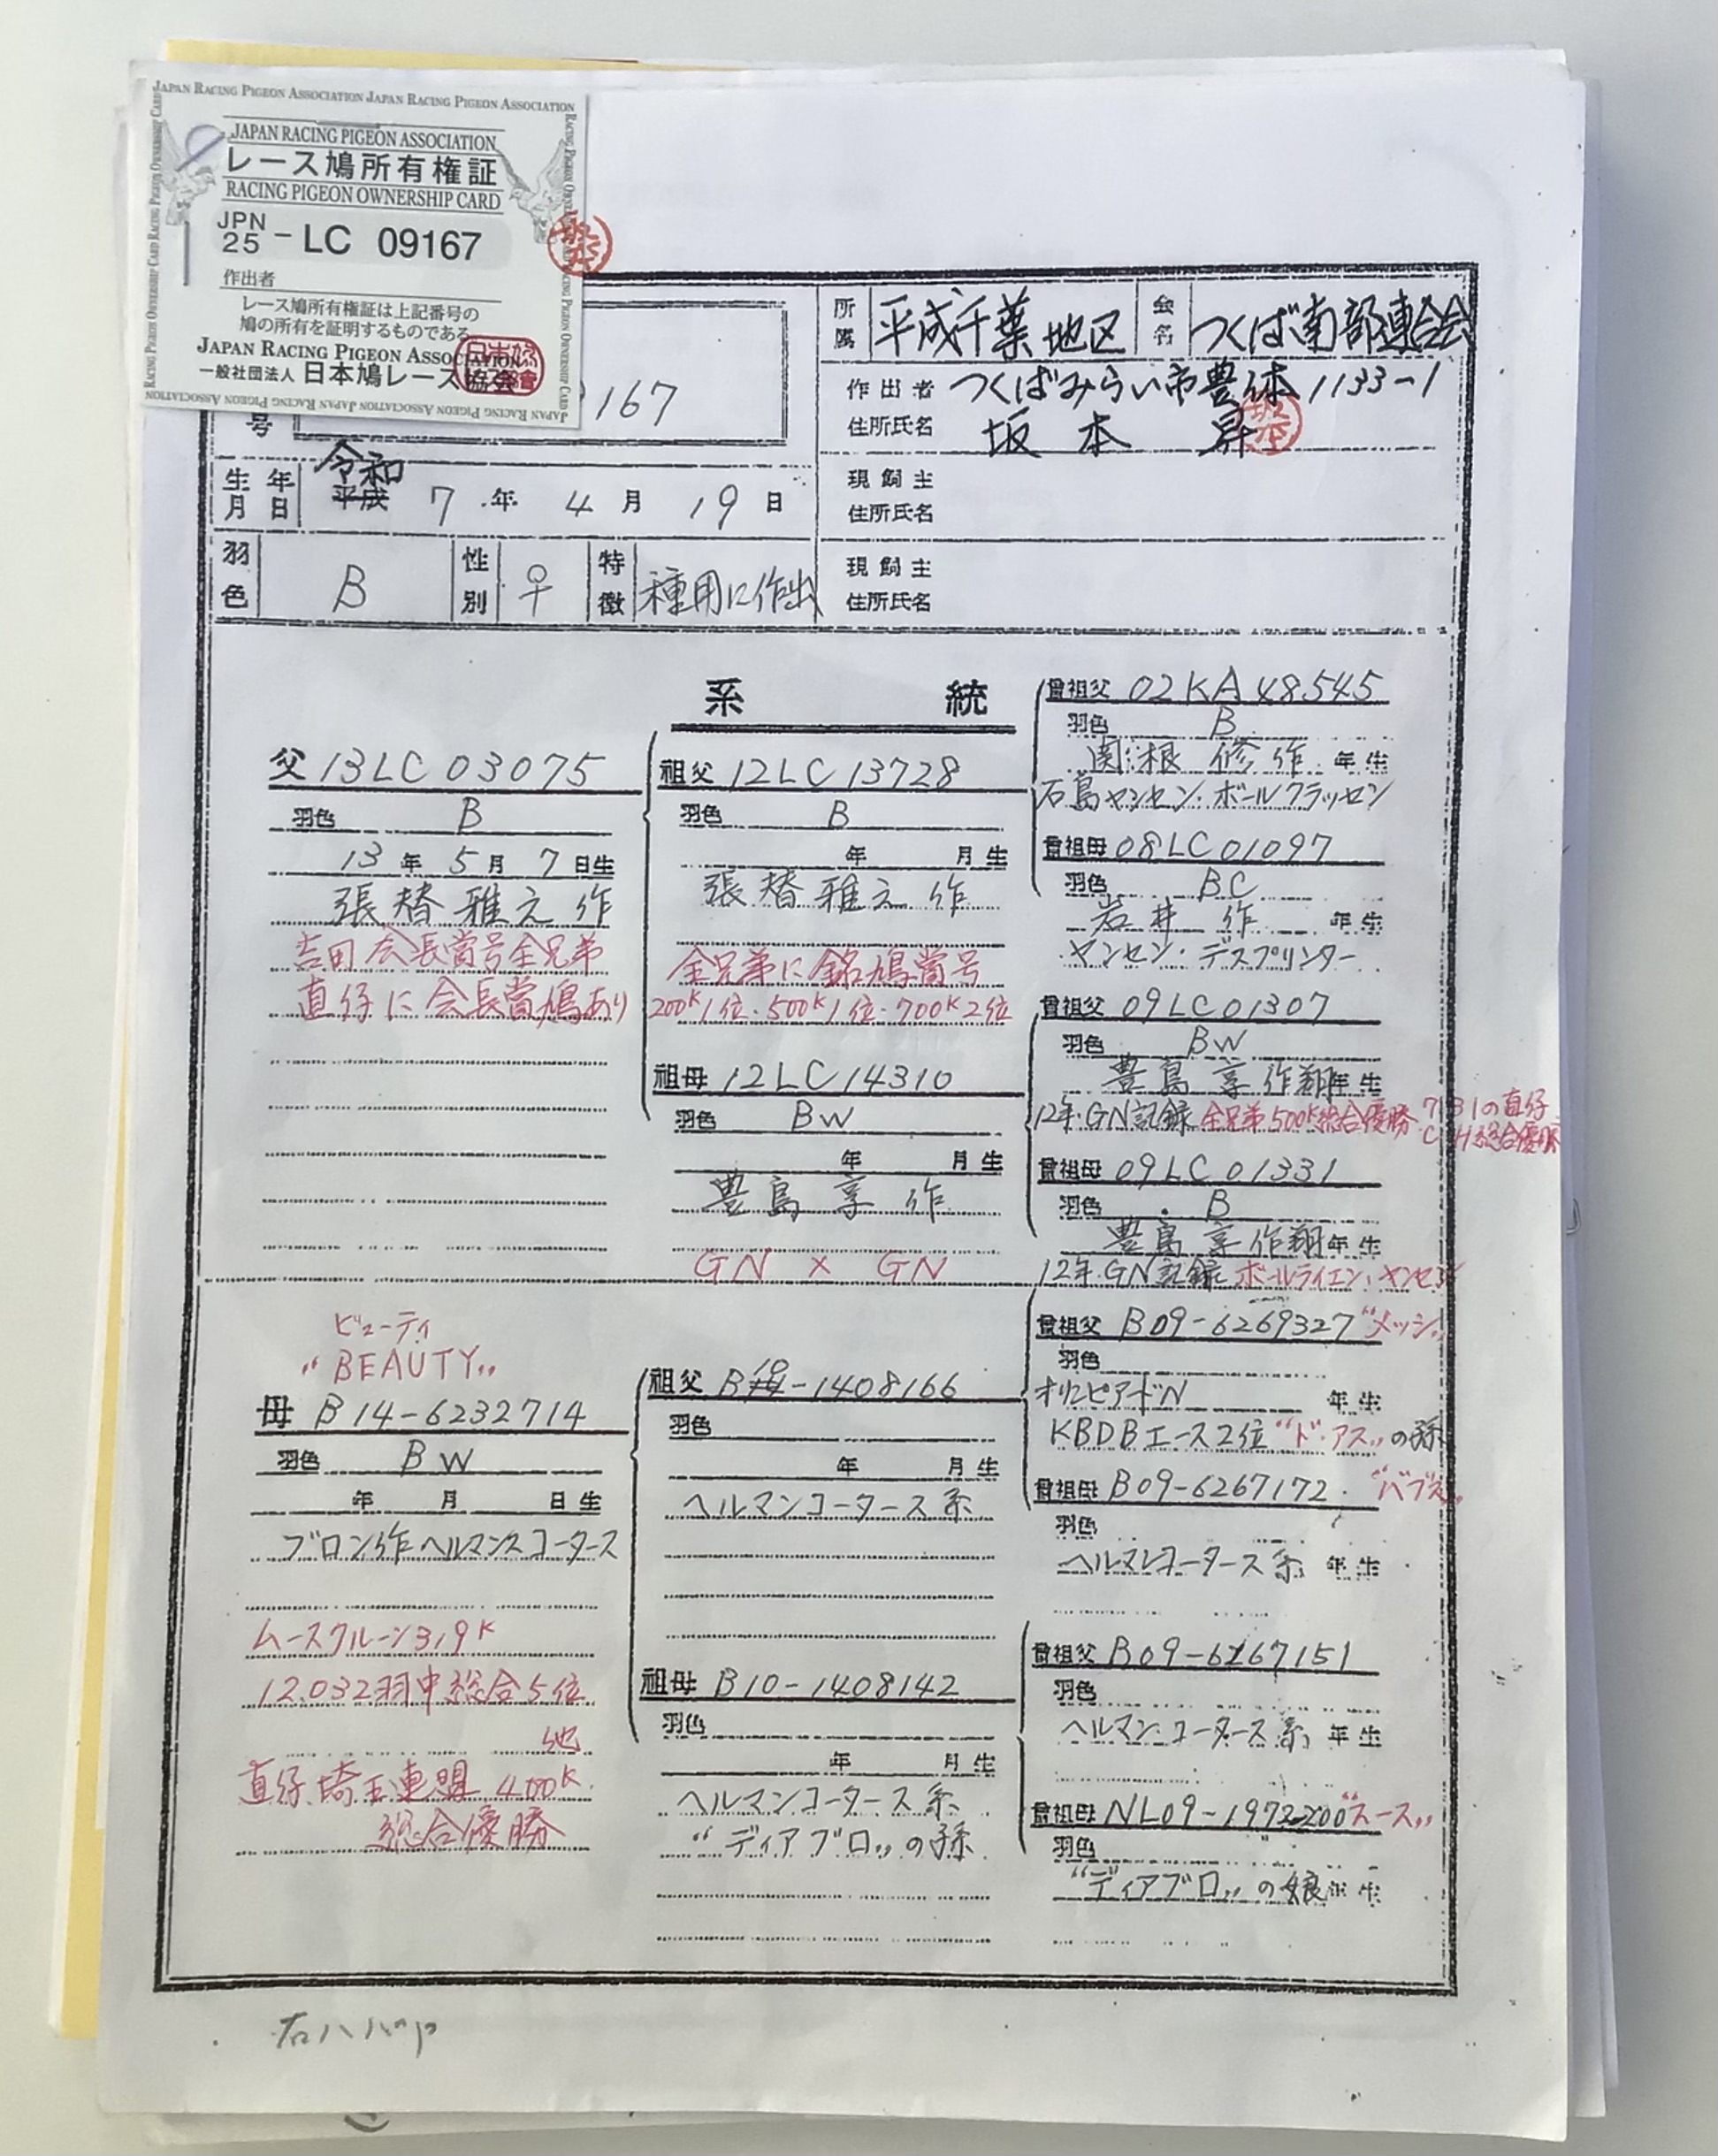 JAPAN RACING PIGEON ASSOCIATION JAPAN RACING PIGEON ASSOCIATION
JAPAN RACING PIGEON ASSOCIATION
レース鳩所有権証
RACING PIGEON OWNERSHIP CARD
JPN
25 - LC 09167
作出者
レース鳩所有権証は上記番号の
鳩の所有を証明するものである
JAPAN RACING PIGEON ASSOCIATION
一般社団法人 日本鳩レース協会
号 167
所属 平成千葉地区 会名 つくば南部連合会
作出者 つくばみらい市豊体1133-1
住所氏名 坂本 昇
生年月日 平成 令和 7年 4月 19日
現飼主
住所氏名
羽色 B 性別 ♀ 特徴 種用に作出
現飼主
住所氏名
系統
父 13LC03075
羽色 B
13年 5月 7日生
張替雅之作
吉田会長賞号全兄弟
直仔に会長賞鳩あり
祖父 12LC13728
羽色 B
年 月生
張替雅之作
全兄弟に銘鳩賞号
200K1位・500K1位・700K2位
祖母 12LC14310
羽色 BW
年 月生
豊島享作
GN × GN
曽祖父 02KA48545
羽色 B
関根 修作 年生
石島ヤンセン・ボールクラッセン
曽祖母 08LC01097
羽色 BC
岩井 作 年生
ヤンセン・デスプリンター
曽祖父 09LC01307
羽色 BW
豊島享作翔 年生
12年GN記録 全兄弟500K総合優勝 の直仔
総合優勝
曽祖母 09LC01331
羽色 B
豊島享作翔 年生
12年GN記録 ボールライエン・ヤンセン
ビューティ
"BEAUTY"
母 B14-6232714
羽色 BW
年 月 日生
ブロン作ヘルマンスコータース
ムースクルーン319K
12.032羽中総合5位
他
直仔 埼玉連盟400K
総合優勝
祖父 B10-1408166
羽色
年 月生
ヘルマンコータース系
祖母 B10-1408142
羽色
年 月生
ヘルマンコータース系
"ディアブロ"の孫
曽祖父 B09-6269327 "メッシ"
羽色
オリンピアードN 年生
KBDBエース2位 "ド・アス"の孫
曽祖母 B09-6267172
羽色
ヘルマンコータース系 年生
曽祖父 B09-6267151
羽色
ヘルマン・コータース系 年生
曽祖母 NL09-1972200 "スース"
羽色
"ディアブロ"の娘 年生